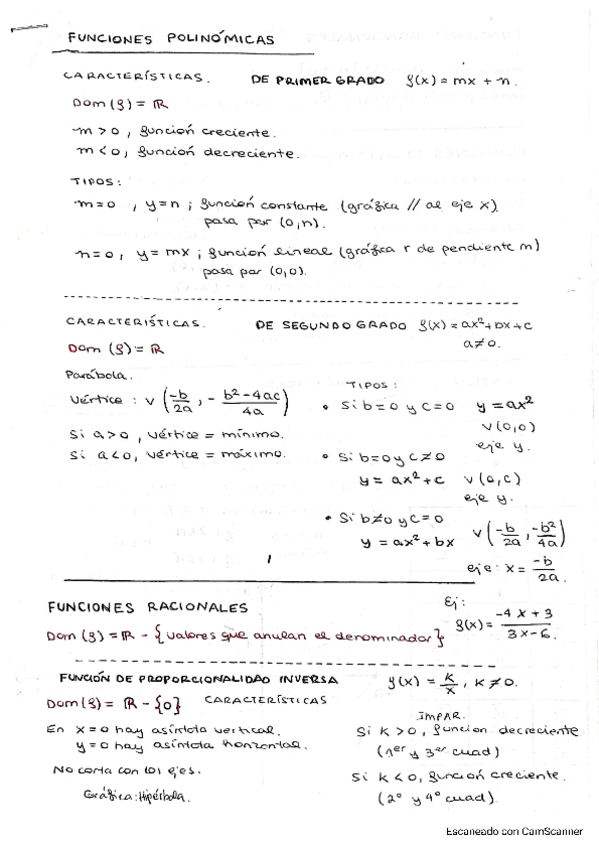 FUNCIONES POLINÓMICAS
CARACTERÍSTICAS. DE PRIMER GRADO f(x) = mx + n.
Dom (f) = ℝ
m > 0, función creciente.
m < 0, función decreciente.
TIPOS:
m = 0, y = n; función constante (gráfica // al eje x)
pasa por (0,n).
n = 0, y = mx; función lineal (gráfica r de pendiente m)
pasa por (0,0).
CARACTERÍSTICAS. DE SEGUNDO GRADO f(x) = ax² + bx + c
a ≠ 0.
Dom (f) = ℝ
Parábola.
Vértice : V (-b/2a, - b²-4ac/4a)
Si a > 0, vértice = mínimo.
Si a < 0, vértice = máximo.
TIPOS:
• Si b = 0 y c = 0 y = ax²
V (0,0)
eje y.
• Si b = 0 y c ≠ 0
y = ax² + c V (0,c)
eje y.
• Si b ≠ 0 y c = 0
y = ax² + bx V (-b/2a, -b²/4a)
eje: x = -b/2a.
FUNCIONES RACIONALES
Dom (f) = ℝ - {valores que anulan el denominador}
Ej:
f(x) = -4x + 3 / 3x - 6.
FUNCIÓN DE PROPORCIONALIDAD INVERSA f(x) = K/x, K ≠ 0.
Dom (f) = ℝ - {0} CARACTERÍSTICAS
En x = 0 hay asíntota vertical.
y = 0 hay asíntota horizontal.
No corta con los ejes.
Gráfica: Hipérbola.
IMPAR.
Si K > 0, función decreciente
(1er y 3er cuad)
Si K < 0, función creciente.
(2º y 4º cuad).
Escaneado con CamScanner